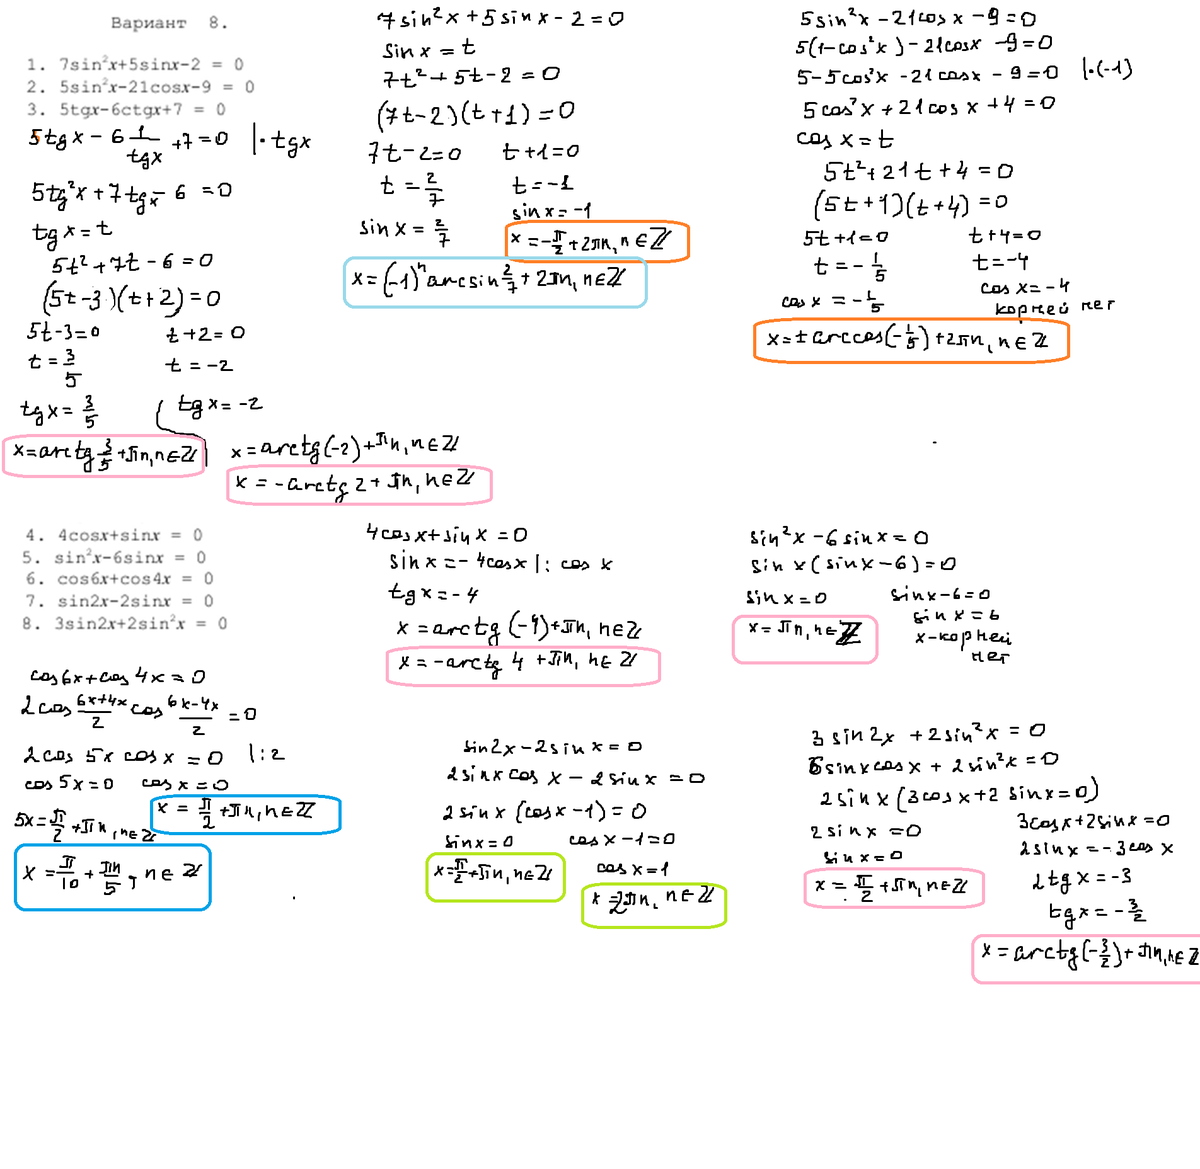 Вариант 8.
1. 7sin²x+5sinx-2 = 0
2. 5sin²x-21cosx-9 = 0
3. 5tgx-6ctgx+7 = 0
5tgx - 6 1/tgx +7=0 |·tgx
5tg²x + 7tgx - 6 = 0
tgx = t
5t² + 7t - 6 = 0
(5t-3)(t+2) = 0
5t-3=0 t+2=0
t = 3/5 t = -2
tgx = 3/5 tgx = -2
x=arctg 3/5 + πn, n∈ℤ
x = arctg(-2) + πn, n∈ℤ
x = -arctg 2 + πn, n∈ℤ
7sin²x + 5sinx - 2 = 0
sinx = t
7t² + 5t - 2 = 0
(7t-2)(t+1) = 0
7t-2=0 t+1=0
t = 2/7 t = -1
sinx = -1
sinx = 2/7
x = -π/2 + 2πn, n∈ℤ
x = (-1)ⁿ arcsin 2/7 + 2πn, n∈ℤ
5sin²x - 21cosx - 9 = 0
5(1-cos²x) - 21cosx - 9 = 0
5-5cos²x - 21cosx - 9 = 0 |·(-1)
5cos²x + 21cosx + 4 = 0
cosx = t
5t² + 21t + 4 = 0
(5t+1)(t+4) = 0
5t+1=0 t+4=0
t = -1/5 t = -4
cosx = -4
cosx = -1/5
корней нет
x = ± arccos(-1/5) + 2πn, n∈ℤ
4. 4cosx+sinx = 0
5. sin²x-6sinx = 0
6. cos6x+cos4x = 0
7. sin2x-2sinx = 0
8. 3sin2x+2sin²x = 0
4cosx + sinx = 0
sinx = -4cosx |: cosx
tgx = -4
x = arctg(-4) + πn, n∈ℤ
x = -arctg 4 + πn, n∈ℤ
sin²x - 6sinx = 0
sinx(sinx-6) = 0
sinx = 0 sinx-6=0
sinx = 6
x = πn, n∈ℤ
x-корней
нет
cos6x + cos4x = 0
2cos (6x+4x)/2 cos (6x-4x)/2 = 0
2cos 5x cosx = 0 |:2
cos5x = 0 cosx = 0
x = π/2 + πn, n∈ℤ
5x = π/2 + πn, n∈ℤ
x = π/10 + πn/5, n∈ℤ
sin2x - 2sinx = 0
2sinx cosx - 2sinx = 0
2sinx (cosx-1) = 0
sinx = 0 cosx-1=0
x = π/2 + πn, n∈ℤ cosx = 1
x = 2πn, n∈ℤ
3sin2x + 2sin²x = 0
6sinxcosx + 2sin²x = 0
2sinx(3cosx+2sinx=0)
3cosx+2sinx=0
2sinx = 0
2sinx = -3cosx
sinx = 0
2tgx = -3
x = π/2 + πn, n∈ℤ
tgx = -3/2
x = arctg(-3/2) + πn, n∈ℤ